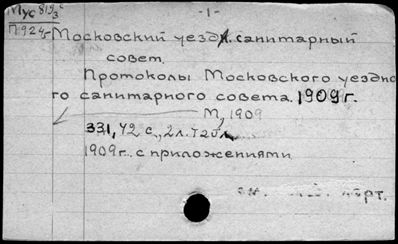 Мус 819/3
П924
-1-
Московский уездн. санитарный
совет.
Протоколы Московского уездно
го санитарного совета. 1909 г.
М, 1909
331, 72 с., 2 л. табл.
1909 г. с приложениями
карт.